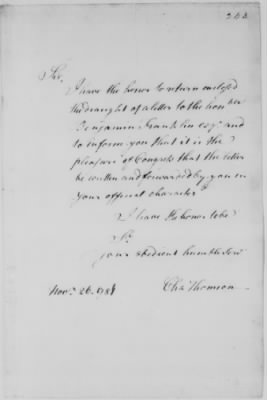 Sir,
I have the honor to return enclosed
the draught of a letter to the hon ble
Benjamin Franklin esqr. and
to inform you that it is the
pleasure of Congress that the letter
be written and forwarded by you in
your official character
I have the honor to be
Sr.
your obedient humble Serv
Novr. 26. 1781
Chas Thomson